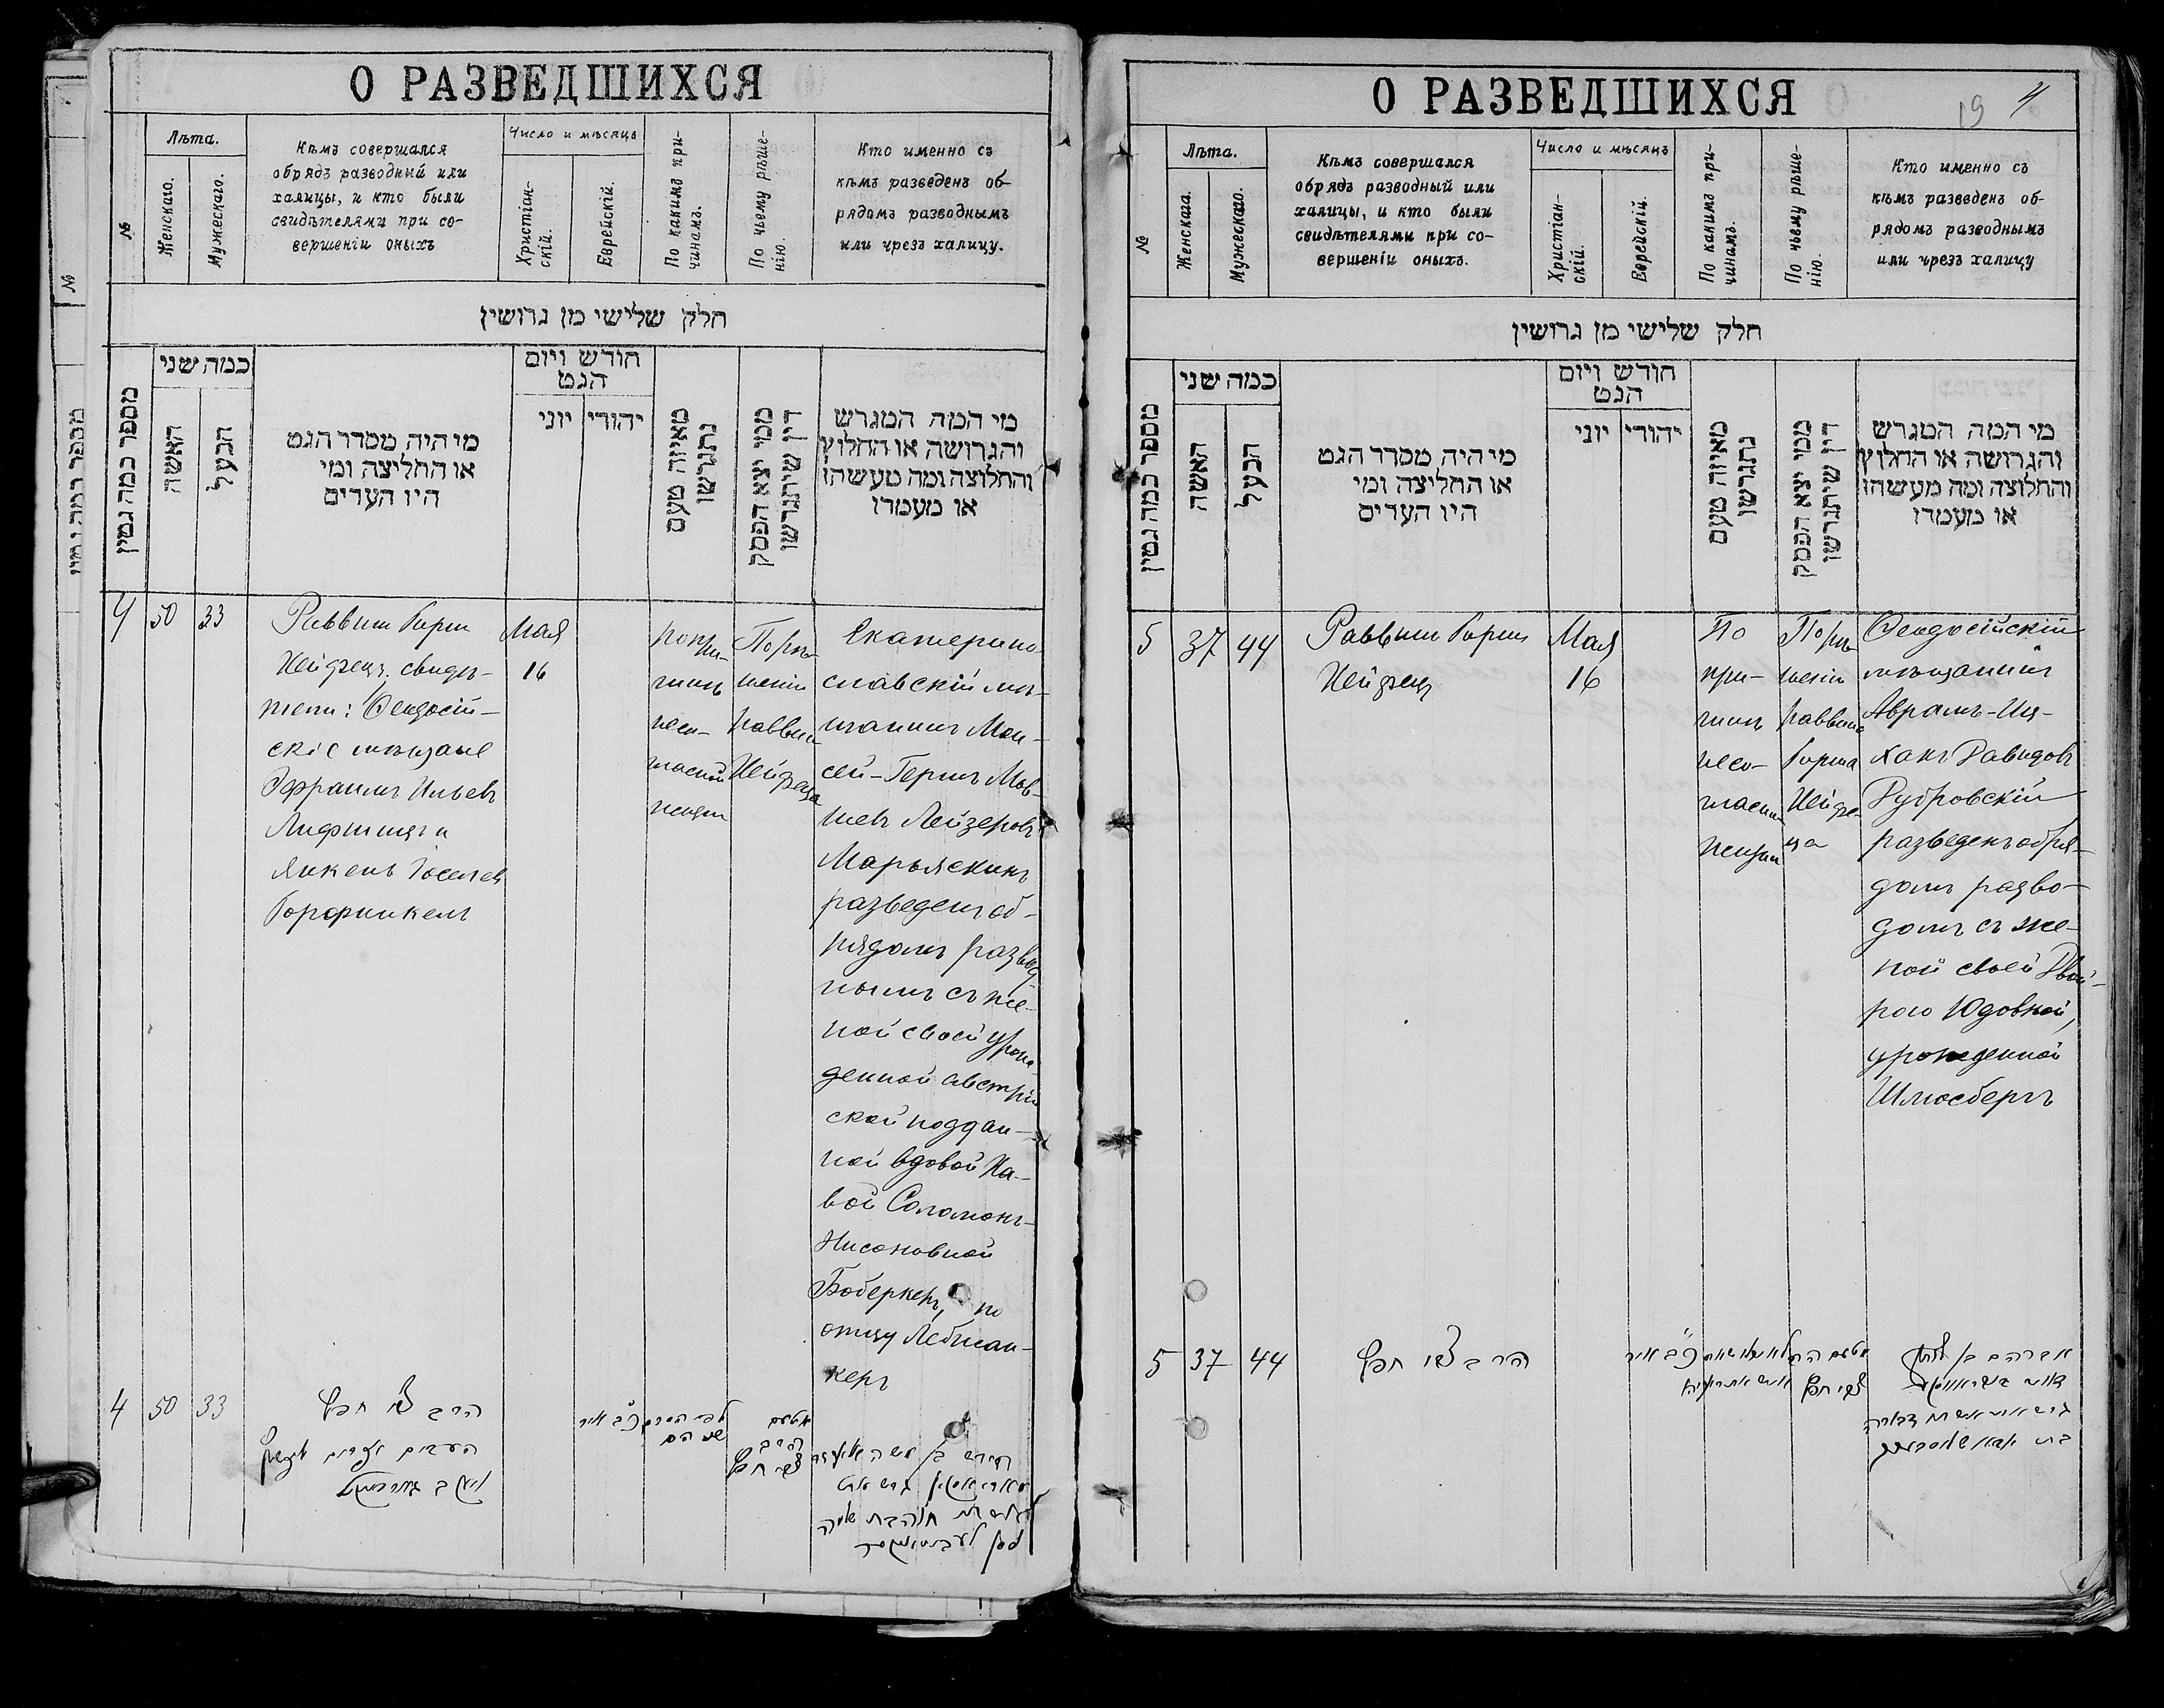 О РАЗВЕДШИХСЯ
№
Лѣта.
Женскаго.
Мужескаго.
Кѣмъ совершался
обрядъ разводный или
халицы, и кто были
свидѣтелями при со-
вершеніи оныхъ
Число и мѣсяцъ
Христіан-
скій.
Еврейскій.
По какимъ при-
чинамъ.
По чьему рѣше-
нію.
Кто именно съ
кѣмъ разведенъ об-
рядомъ разводнымъ
или чрезъ халицу.
חלק שלישי מן גרושין
מספר כמה גטין
כמה שני
האשה
הבעל
מי היה מסדר הגט
או החליצה ומי
היו העדים
חודש ויום
הגט
יוני
יהודי
מאיזה טעם
נתגרשו
ממי יצא הפסק
דין שיתגרשו
מי המה המגרש
והגרושה או החלוץ
והחלוצה ומה מעשהו
או מעמדו
4
50
33
Раввин Гирш
Хейфецъ, свидѣ-
тели: Ѳеодосій-
скіе мѣщане
Эфраимъ Ильевъ
Лифшицъ и
Янкель Іоселев
Горфинкель
Мая
16
По при-
чинѣ
несо-
гласной
жизни
По рѣ-
шенію
раввина
Хейфеца
Екатерино-
славскій мѣ-
щанинъ Мои-
сей-Гершъ Мов-
шевъ Лейзеровъ
Марьяскинъ
разведенъ об-
рядомъ развод-
нымъ съ же-
ной своей урож-
денной австрій
ской поддан-
ной вдовой Ха-
вой Соломонъ-
Нисоновной
Боберкеръ, по
отцу Лебман-
керъ
4
50
33
הרב צבי חפץ
О РАЗВЕДШИХСЯ
19
4
№
Лѣта.
Женскаго.
Мужескаго.
Кѣмъ совершался
обрядъ разводный или
халицы, и кто были
свидѣтелями при со-
вершеніи оныхъ.
Число и мѣсяцъ
Христіан-
скій.
Еврейскій.
По какимъ при-
чинамъ.
По чьему рѣше-
нію.
Кто именно съ
кѣмъ разведенъ об-
рядомъ разводнымъ
или чрезъ халицу
חלק שלישי מן גרושין
מספר כמה גטין
כמה שני
האשה
הבעל
מי היה מסדר הגט
או החליצה ומי
היו העדים
חודש ויום
הגט
יוני
יהודי
מאיזה טעם
נתגרשו
ממי יצא הפסק
דין שיתגרשו
מי המה המגרש
והגרושה או החלוץ
והחלוצה ומה מעשהו
או מעמדו
5
37
44
Раввин Гирш
Хейфецъ
Мая
16
По
при-
чинѣ
несо-
гласной
жизни
По рѣ-
шенію
раввина
Гирша
Хейфе-
ца
Ѳеодосійскій
мѣщанинъ
Абрамъ-Иц-
хакъ Давидовъ
Дубровскій
разведенъ обря-
домъ разво-
домъ съ же-
ной своей Двой-
рою Юдовной,
урожденной
Шлюсбергъ
5
37
44
הרב צבי חפץ